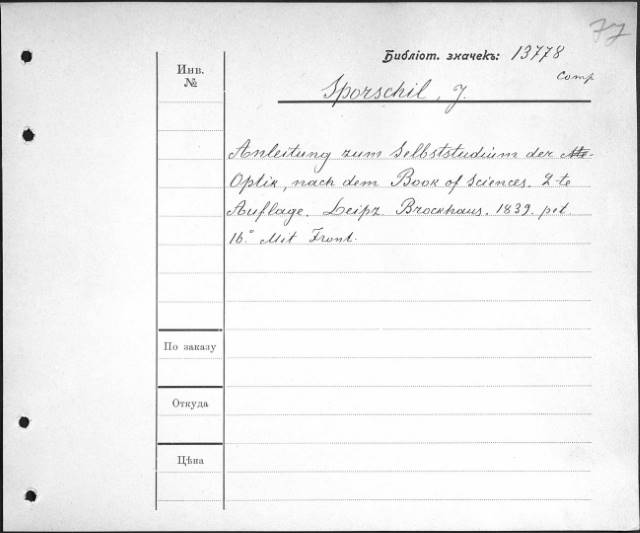 77
Библіот. значекъ: 13778
Comp
Инв.
№
Sporschil, J.
Anleitung zum Selbststudium der
Optik, nach dem Book of Sciences. 2-te
Auflage. Leipz. Brockhaus. 1839. pet.
16.° Mit Front.
По заказу
Откуда
Цѣна